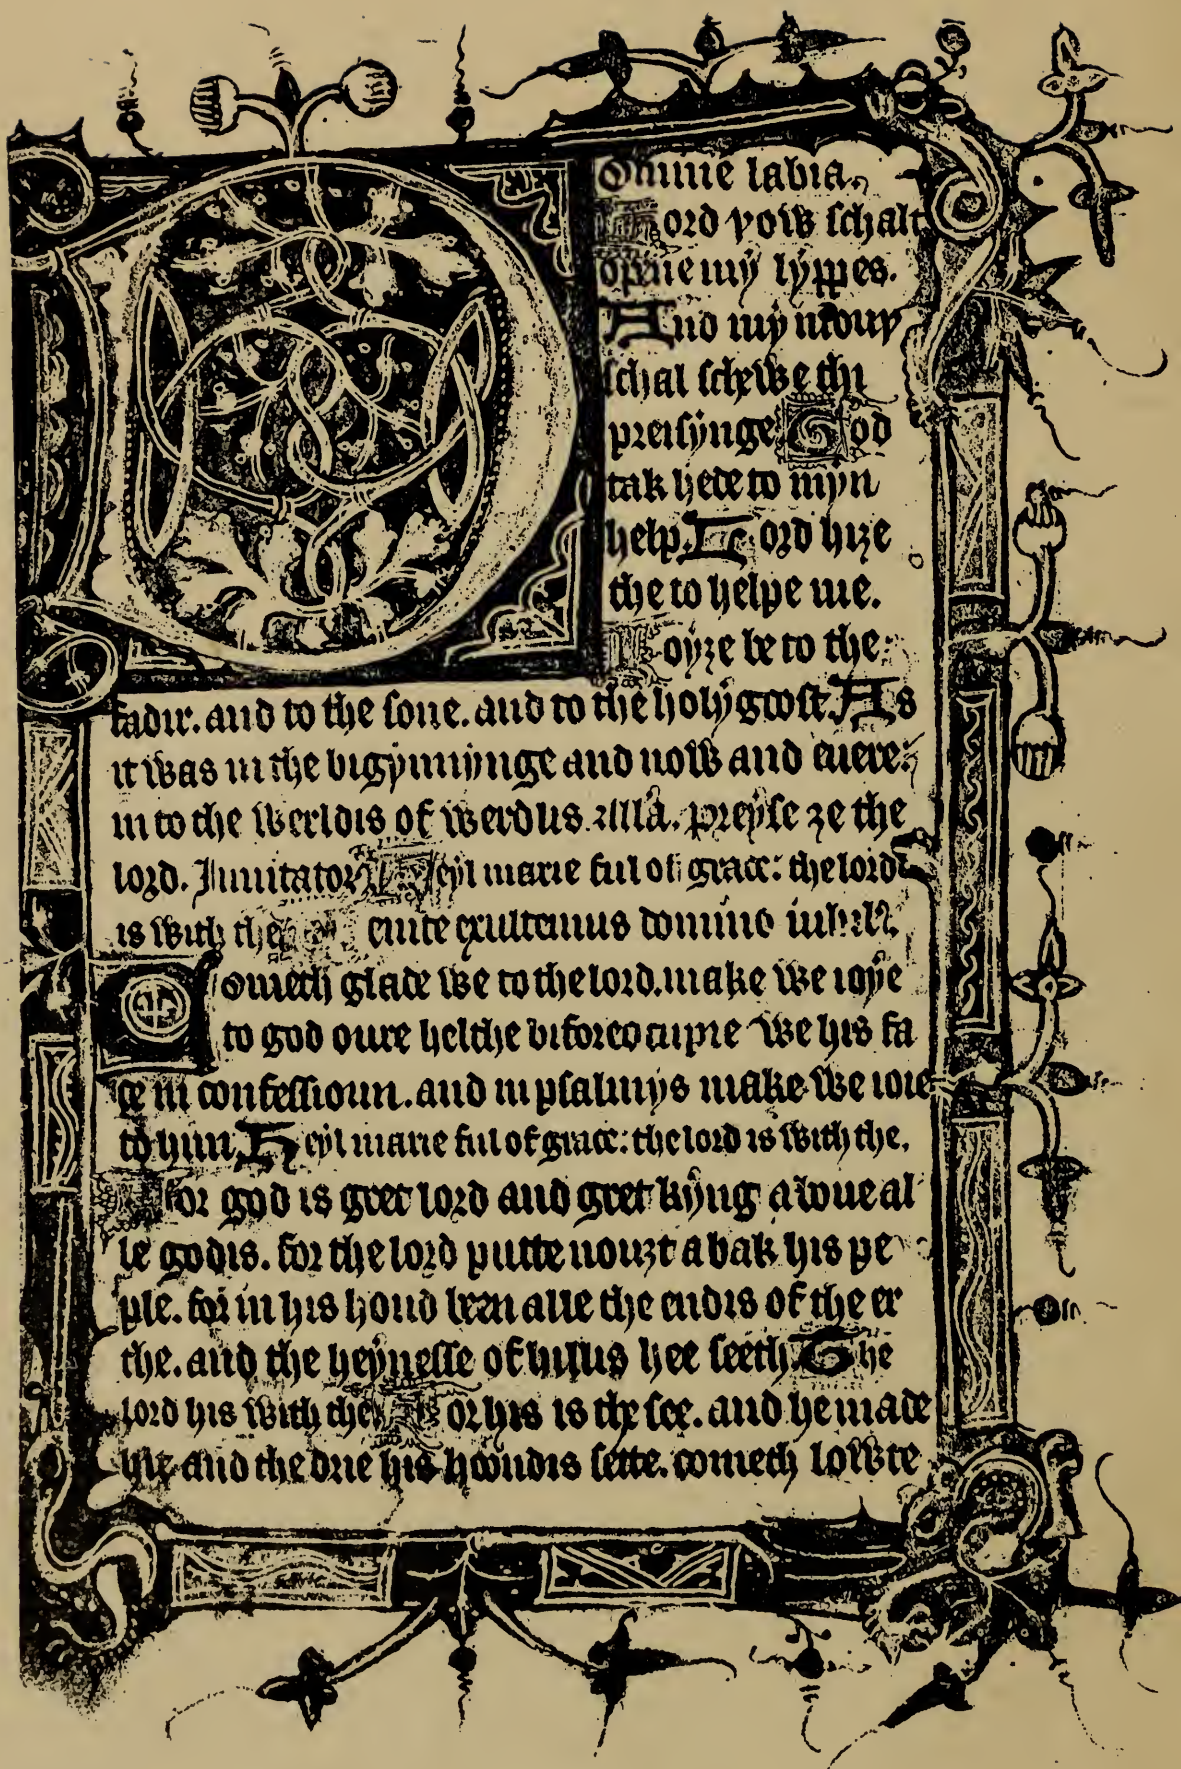 Domine labia.
Lord þow schalt
opene my lyppes.
And my mouþ
schal schewe thi
preisynge God
tak hede to myn
help. Lord hize
the to helpe me.
Joyze be to the
fadir. and to the sone. and to the holy gost. As
it was in the bigynnynge and now and euere:
in to the werldis of werdlis. Preyse ze the
lord. Inuitator Heyl marie ful of grace: the lord
is with the enite exultemus domino
Cometh glade we to the lord. make we ioye
to god oure helthe biforeocupie we his fa
ce in confessioun. and in psalmys make we ioie
to him. Heyl marie ful of grace: the lord is with the.
For god is gret lord and gret kyng aboue al
le godis. for the lord putte nouzt abak his pe
ple. for in his hond been alle the endis of the er
the. and the heynesse of hillus hee seeth. The
lord his with the For his is the see. and he made
hit and the drie his hoondis sette. cometh lowte